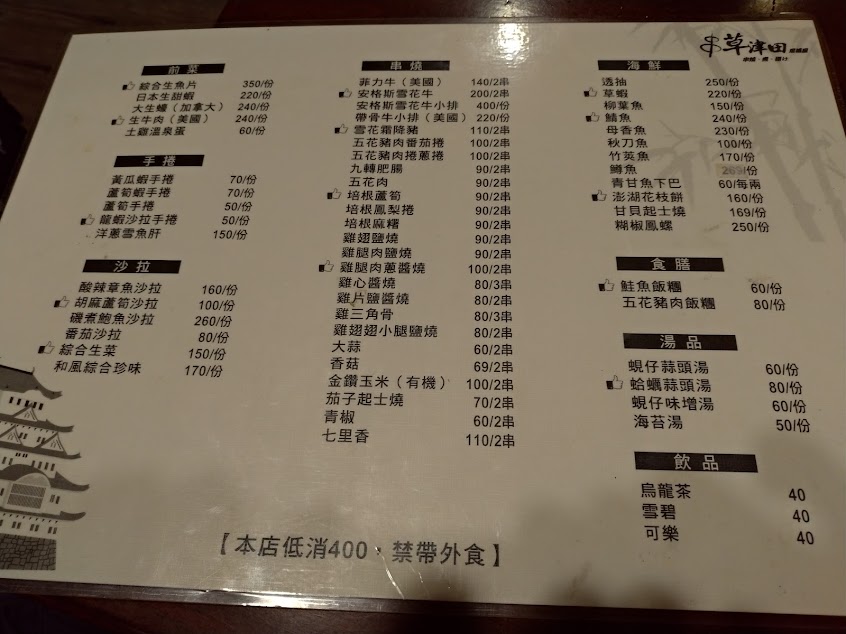 草津田
前菜
綜合生魚片 350/份
日本生甜蝦 220/份
大生蠔（加拿大） 240/份
生牛肉（美國） 240/份
土雞溫泉蛋 60/份
手捲
黃瓜蝦手捲 70/份
蘆筍蝦手捲 70/份
蘆筍手捲 50/份
龍蝦沙拉手捲 50/份
洋蔥雪魚肝 150/份
沙拉
酸辣章魚沙拉 160/份
胡麻蘆筍沙拉 100/份
磯煮鮑魚沙拉 260/份
番茄沙拉 80/份
綜合生菜 150/份
和風綜合珍味 170/份
串燒
菲力牛（美國） 140/2串
安格斯雪花牛 200/2串
安格斯雪花牛小排 400/份
帶骨牛小排（美國） 220/份
雪花霜降豬 110/2串
五花豬肉番茄捲 100/2串
五花豬肉捲蔥捲 100/2串
九轉肥腸 90/2串
五花肉 90/2串
培根蘆筍 90/2串
培根鳳梨捲 90/2串
培根麻糬 90/2串
雞翅鹽燒 90/2串
雞腿肉鹽燒 90/2串
雞腿肉蔥醬燒 100/2串
雞心醬燒 80/2串
雞片鹽醬燒 80/2串
雞三角骨 80/3串
雞翅翅小腿鹽燒 80/2串
大蒜 60/2串
香菇 69/2串
金鑽玉米（有機） 100/2串
茄子起士燒 70/2串
青椒 60/2串
七里香 110/2串
海鮮
透抽 250/份
草蝦 220/份
柳葉魚 150/份
鯖魚 240/份
母香魚 230/份
秋刀魚 100/份
竹筴魚 170/份
鱒魚 269/份
青甘魚下巴 60/每兩
澎湖花枝餅 160/份
甘貝起士燒 169/份
糊椒鳳螺 250/份
食膳
鮭魚飯糰 60/份
五花豬肉飯糰 80/份
湯品
蜆仔蒜頭湯 60/份
蛤蠣蒜頭湯 80/份
蜆仔味增湯 60/份
海苔湯 50/份
飲品
烏龍茶 40
雪碧 40
可樂 40
【本店低消400，禁帶外食】